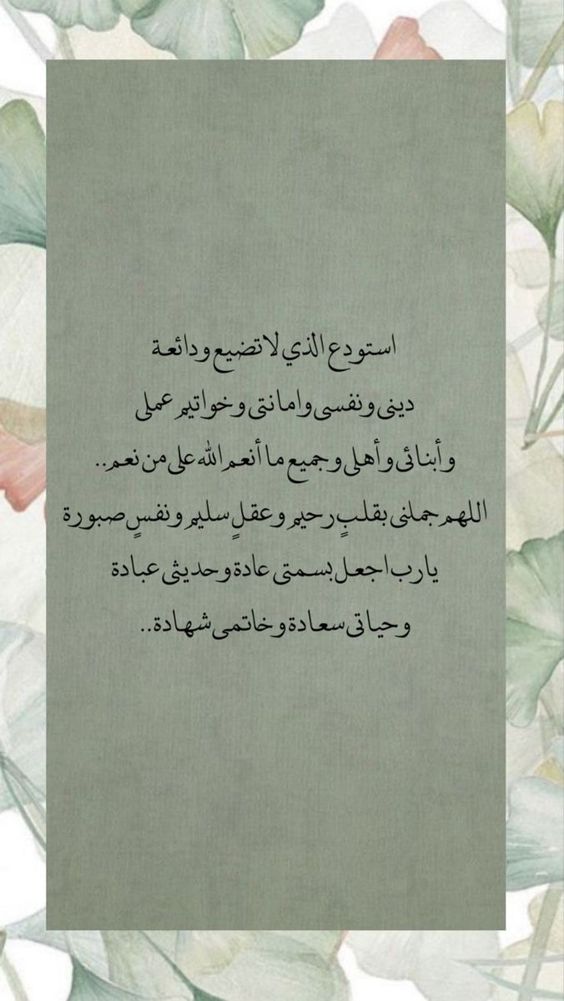 استودع الذي لا تضيع ودائعة
ديني ونفسي وامانتي وخواتيم عملي
وأبنائي وأهلي وجميع ما أنعم الله علي من نعم..
اللهم جملني بقلبٍ رحيم وعقلٍ سليم ونفسٍ صبورة
يارب اجعل بسمتي عادة وحديثي عبادة
وحياتي سعادة وخاتمي شهادة..